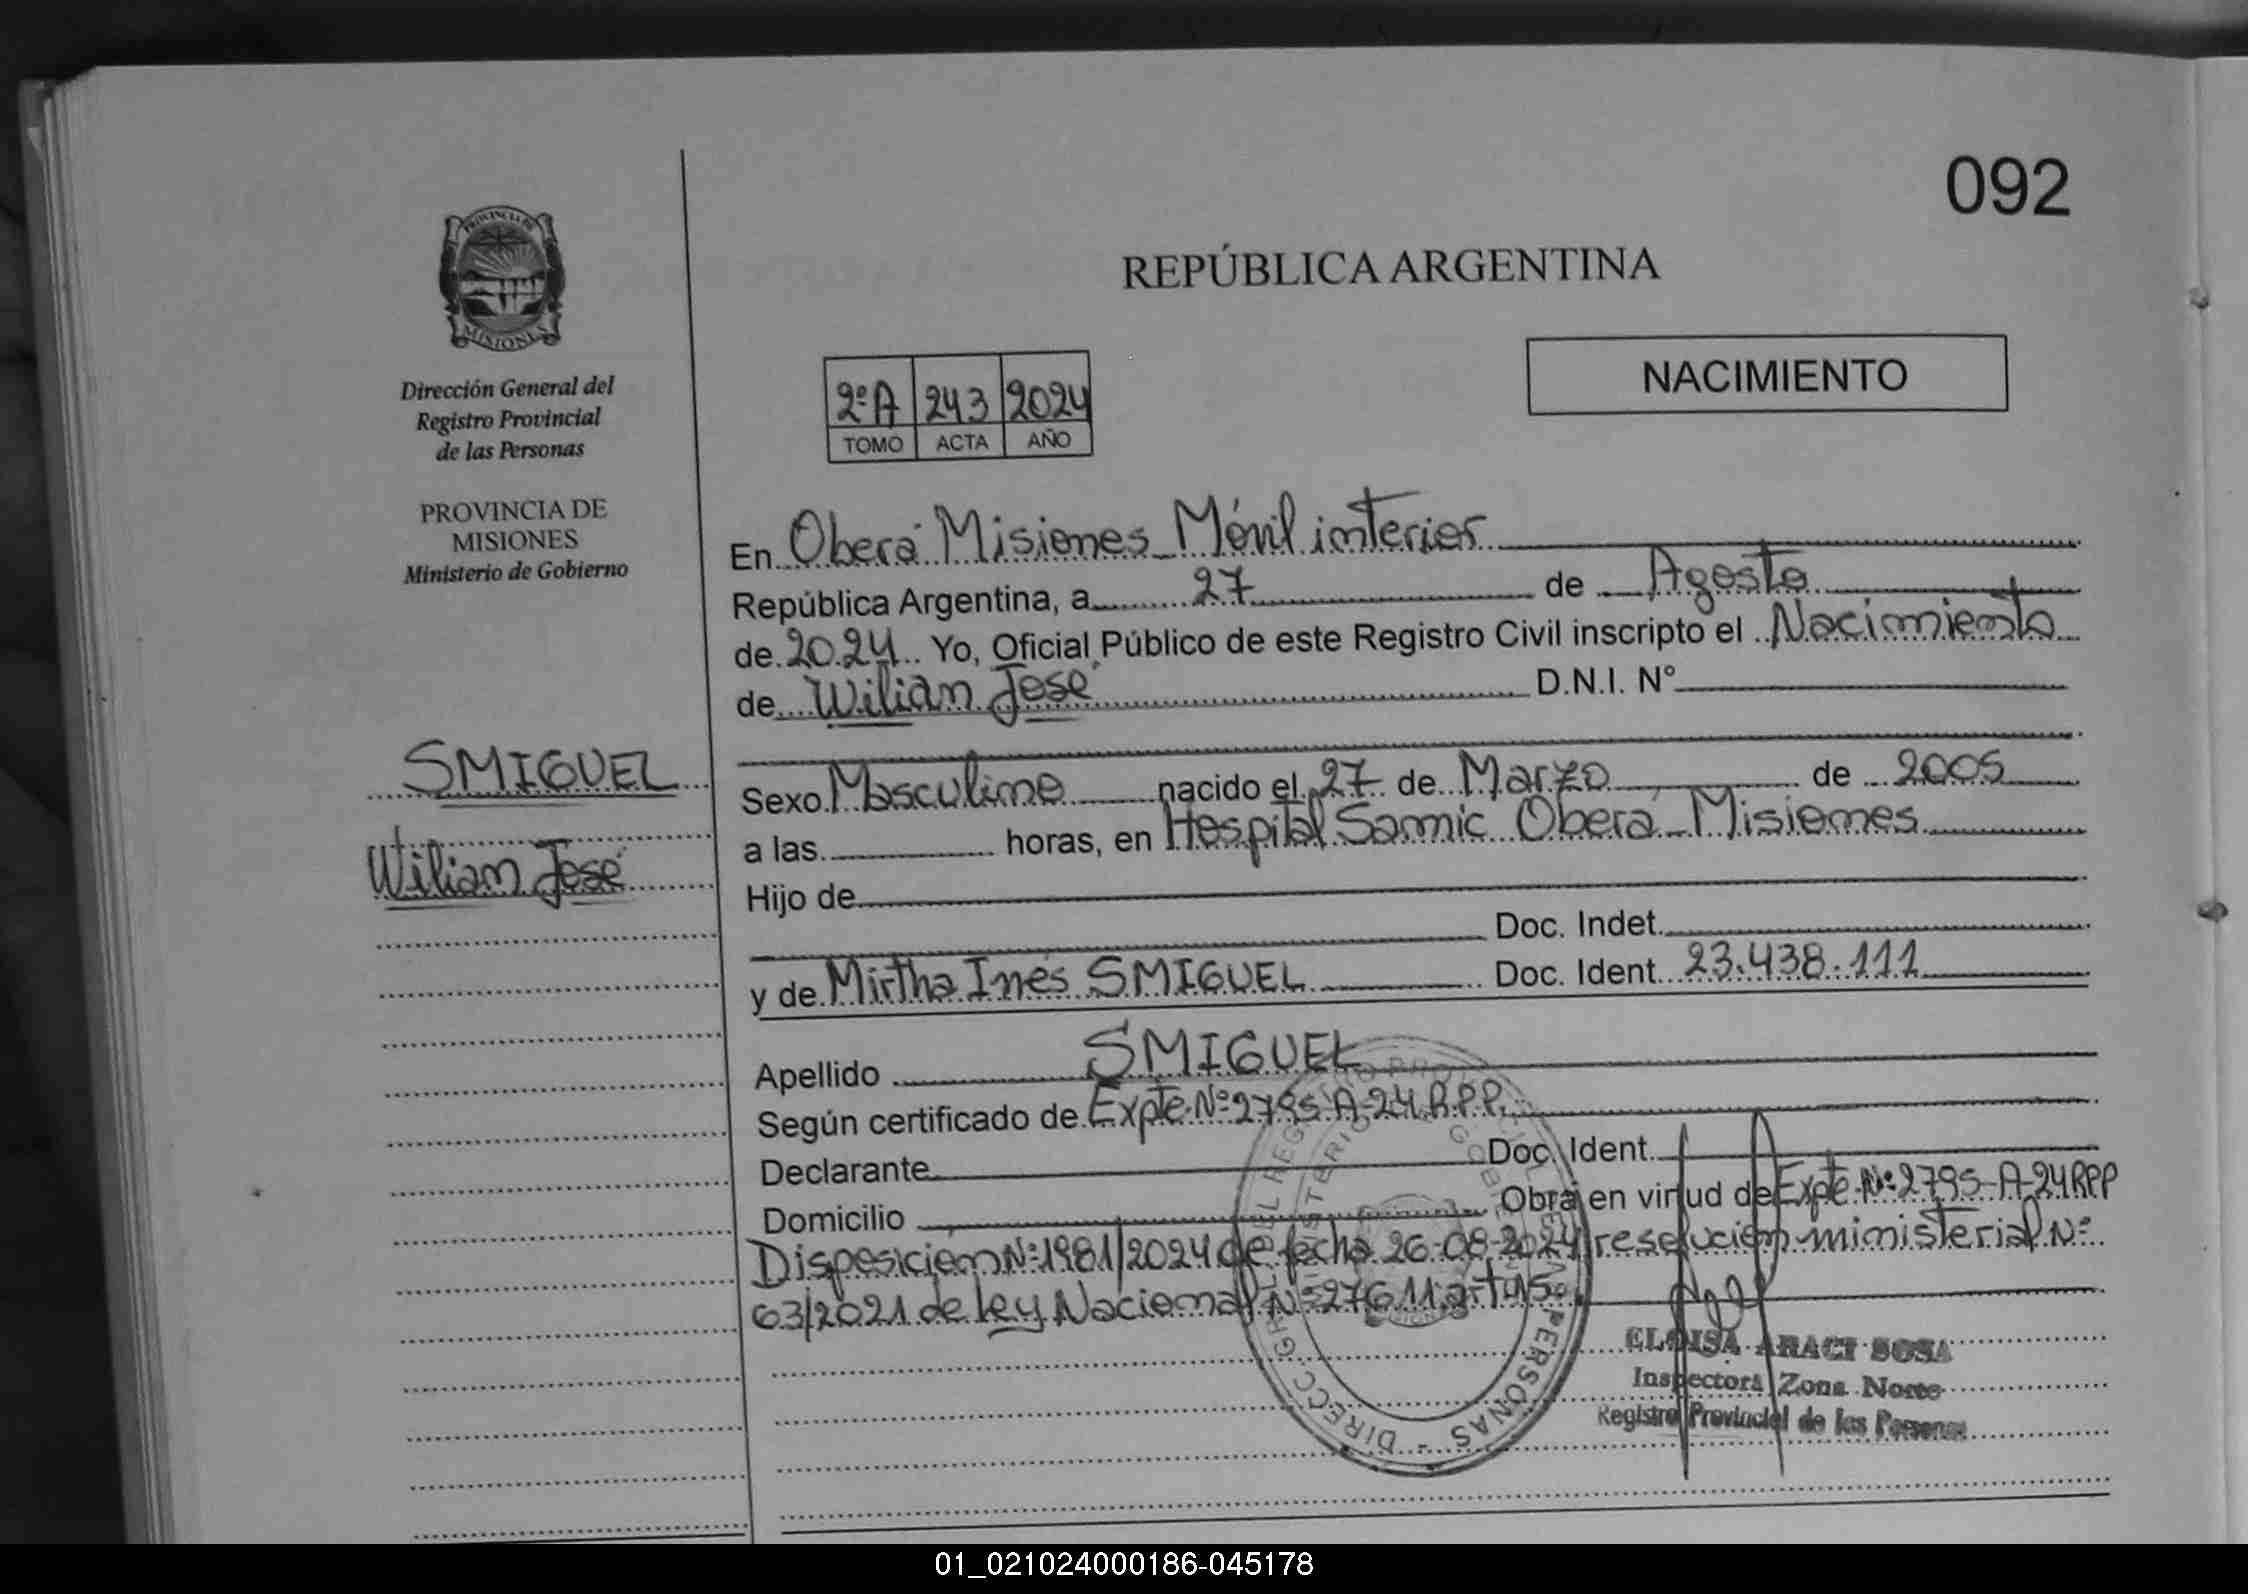 092
PROVINCIA DE
MISIONES
Dirección General del
Registro Provincial
de las Personas
PROVINCIA DE
MISIONES
Ministerio de Gobierno
SMIGUEL
Wilian José
REPÚBLICA ARGENTINA
NACIMIENTO
2º A 243 2024
TOMO ACTA AÑO
En Oberá Misiones Móvil interior
República Argentina, a 27 de Agosto
de 2024 Yo, Oficial Público de este Registro Civil inscripto el Nacimiento
de Wilian José D.N.I. Nº
Sexo Masculino nacido el 27 de Marzo de 2005
a las horas, en Hospital Samic Oberá Misiones
Hijo de
Doc. Indet.
y de Mirtha Inés SMIGUEL Doc. Ident. 23.438.111
Apellido SMIGUEL
Según certificado de Expte. Nº 2795-A-24 R.P.P.
Declarante Doc. Ident.
Domicilio Obra en virtud de Expte Nº 2795-A-24 RPP
Disposición Nº 1981/2024 de fecha 26-08-2024 resolución ministerial Nº
63/2021 de ley Nacional Nº 27611
ELOISA ARACI SOSA
Inspectora Zona Norte
Registro Provincial de las Personas
01_021024000186-045178